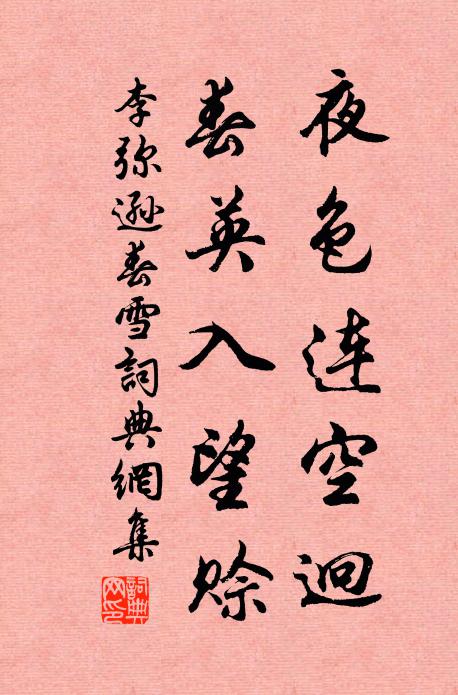 夜色连空迥
春英入望赊
李弥逊春雪詞典網集
詞典网印